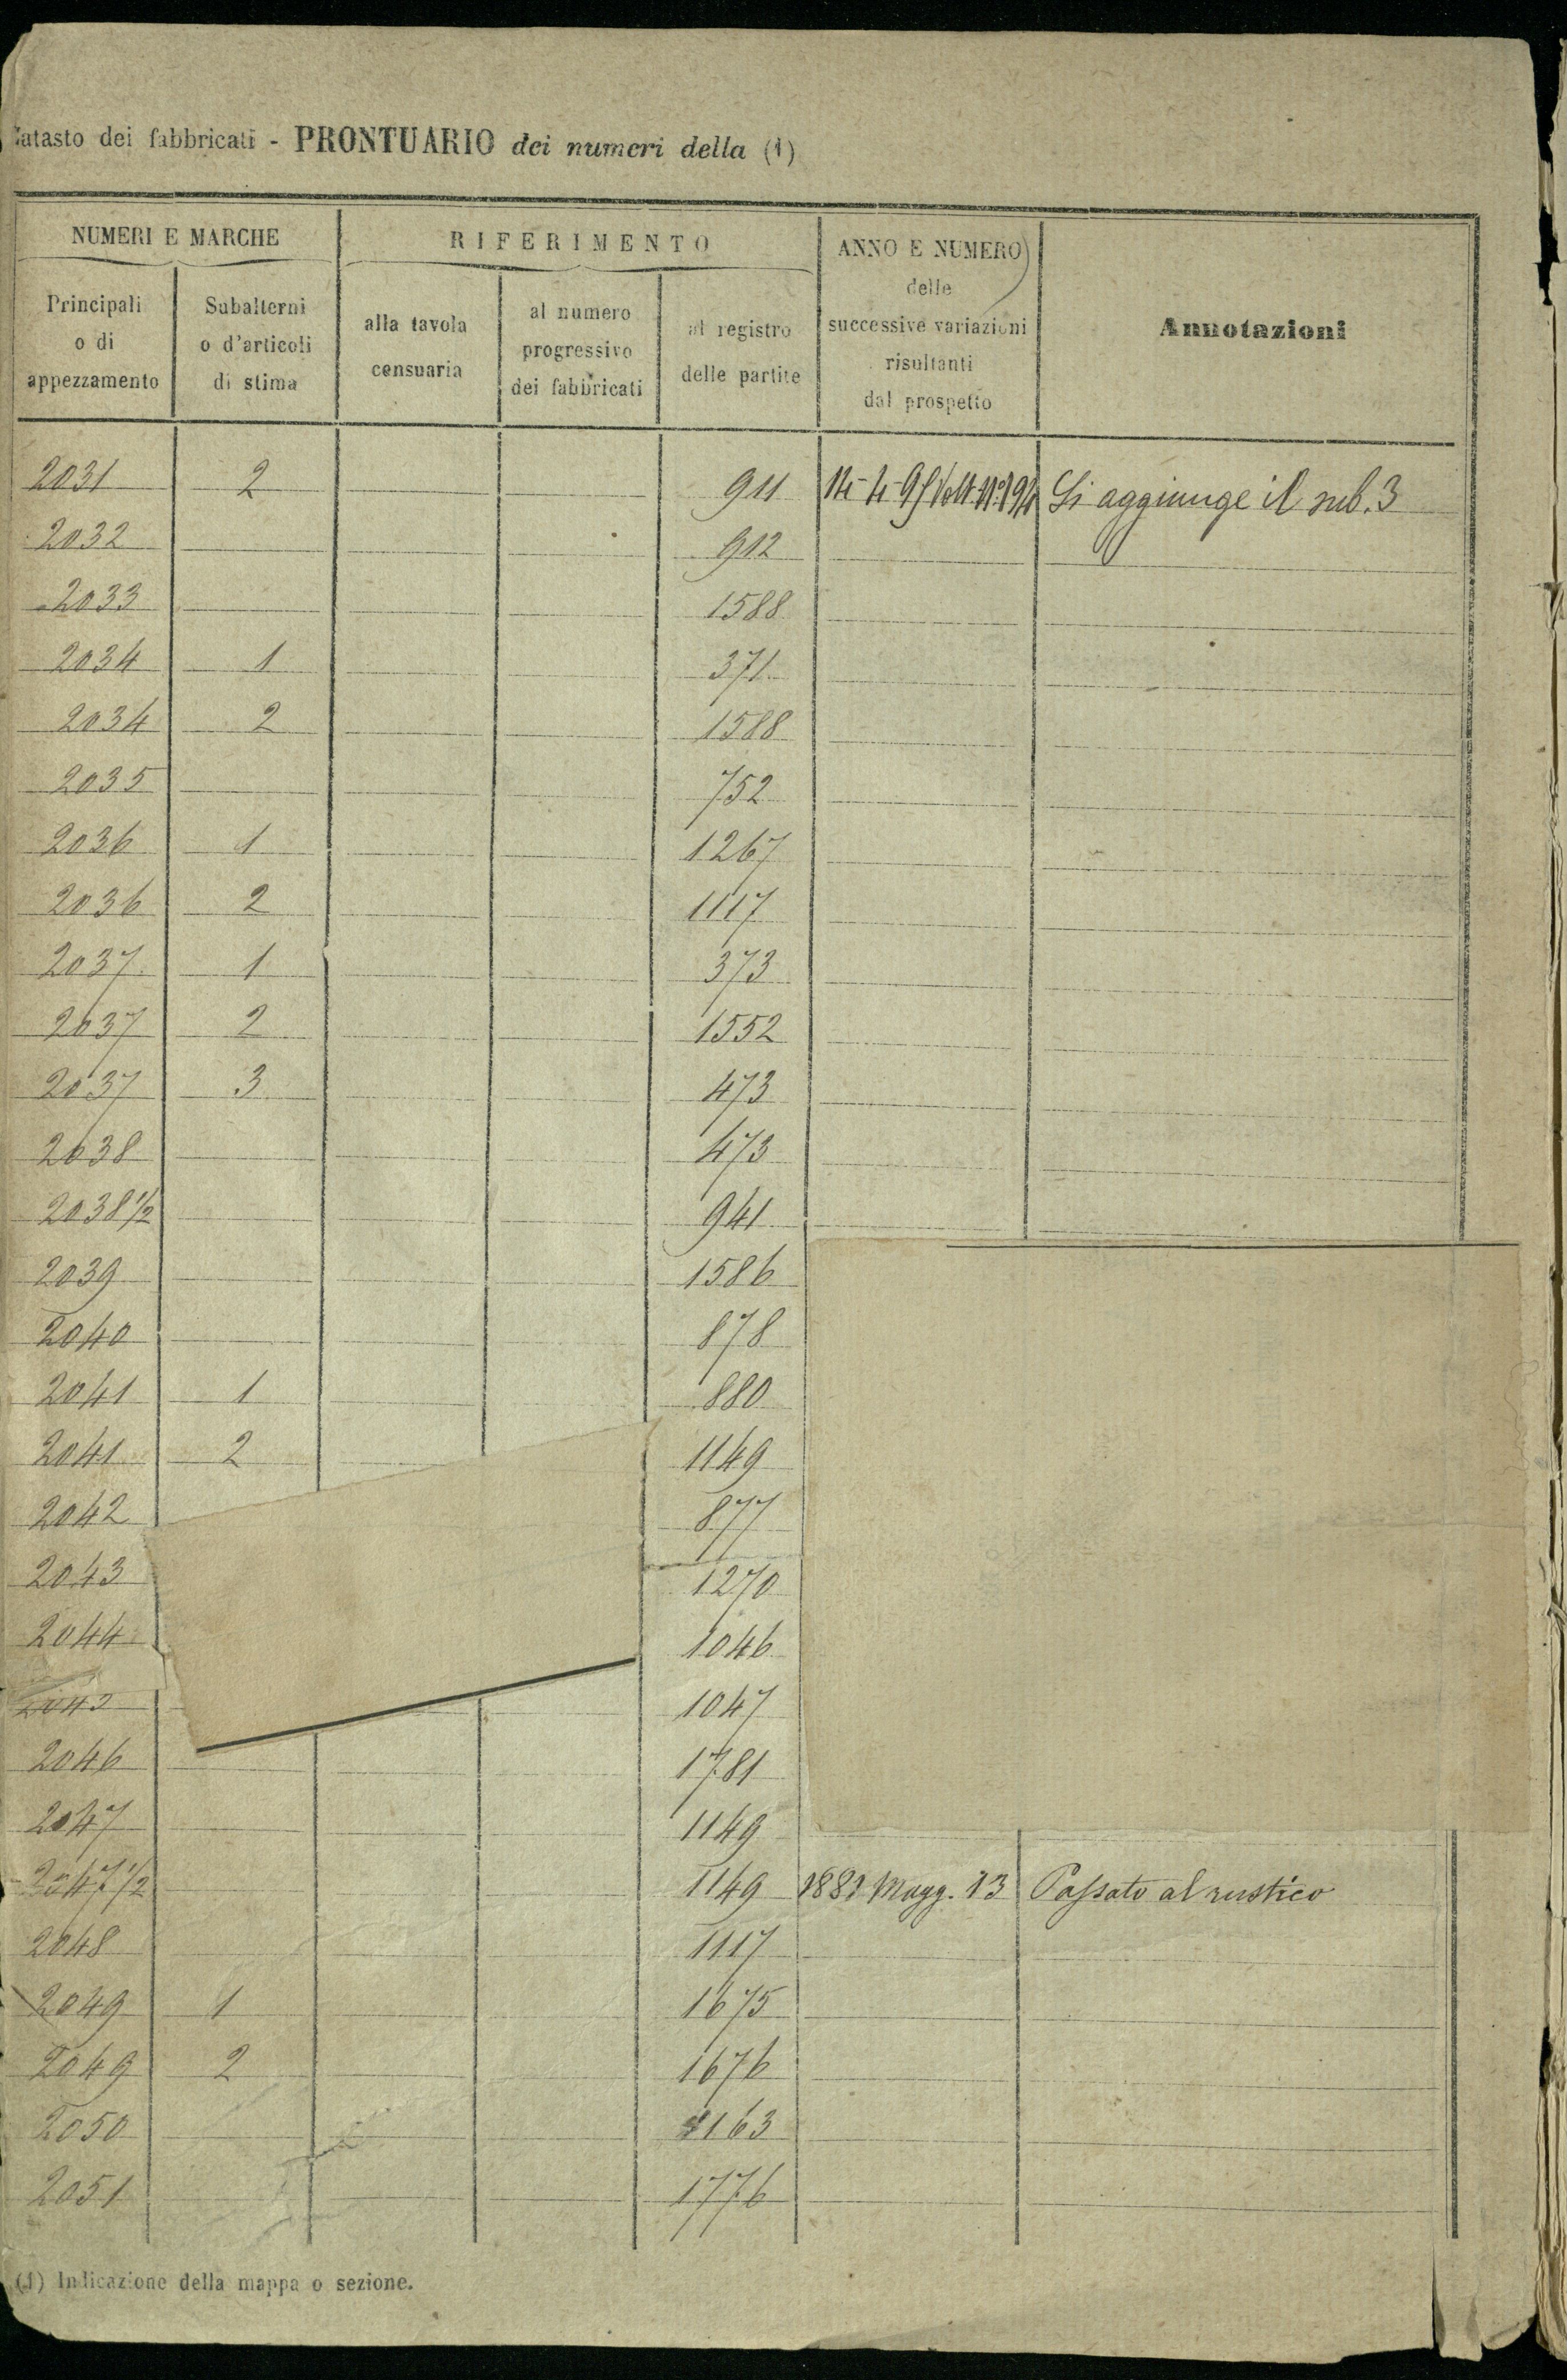 Catasto dei fabbricati - PRONTUARIO dei numeri della (1)
NUMERI E MARCHE
RIFERIMENTO
ANNO E NUMERO
delle
successive variazioni
risultanti
dal prospetto
Annotazioni
Principali
o di
appezzamento
Subalterni
o d'articoli
di stima
alla tavola
censuaria
al numero
progressivo
dei fabbricati
al registro
delle partite
2031 2 911 Si aggiunge il sub. 3
2032 912
2033 1588
2034 1 371
2034 2 1588
2035 752
2036 1 1267
2036 2 1117
2037 1 373
2037 2 1552
2037 3 473
2038 473
2038 1/2 941
2039 1586
2040 878
2041 1 880
2041 2 1149
2042 877
2043 1270
2044 1046
2045 1047
2046 1781
2047 1149
2047 1/2 1149 1881 Magg. 13 Passato al rustico
2048 1117
2049 1 1675
2049 2 1676
2050 1163
2051 1776
(1) Indicazione della mappa o sezione.